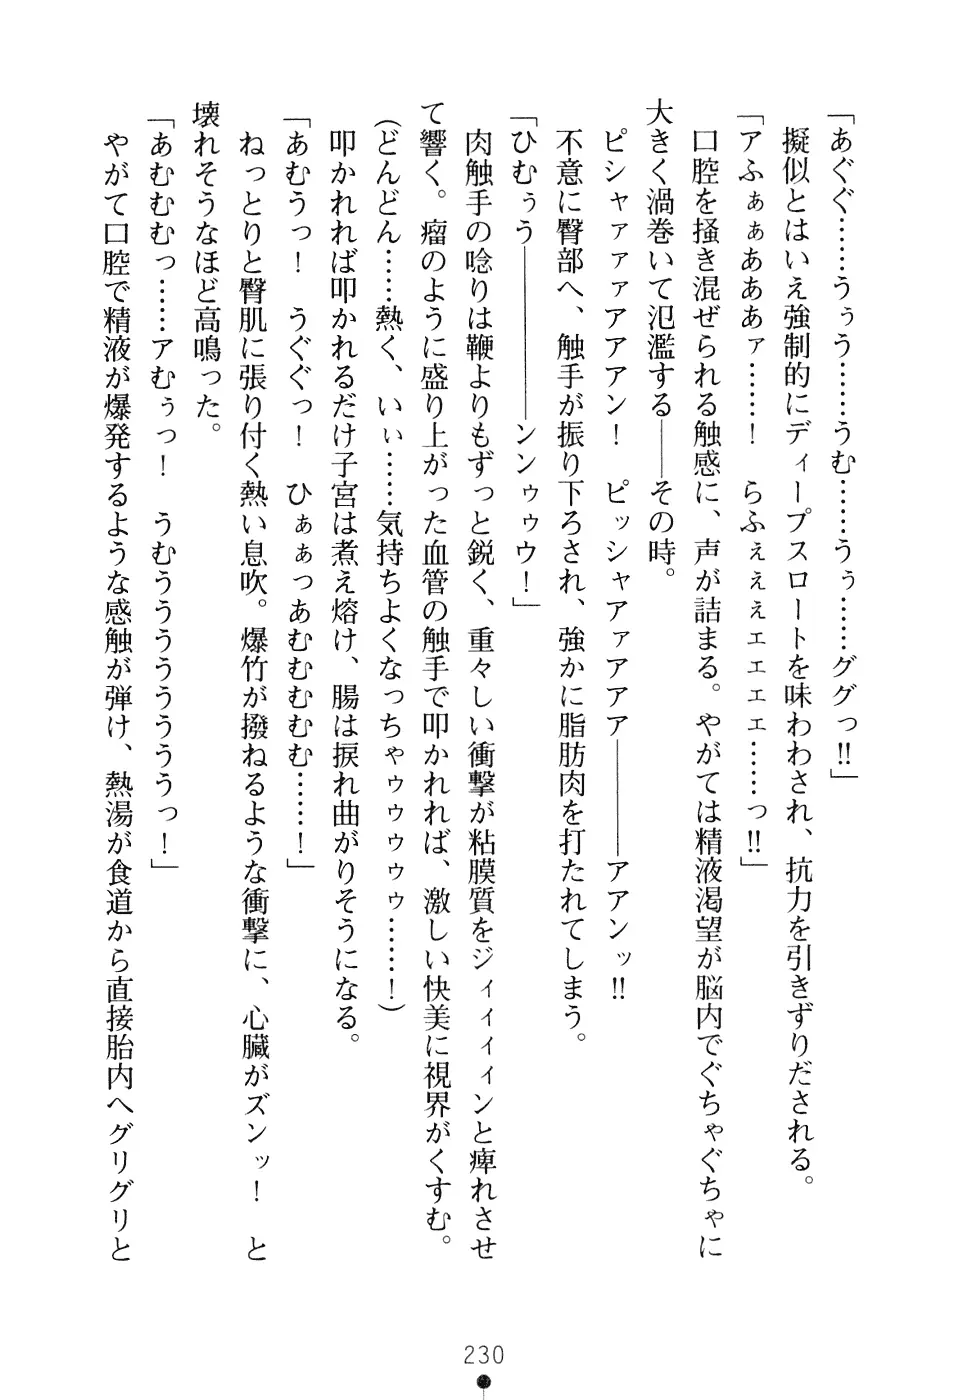 「あぐぐ……うぅう……うむ……うぅ……ググっ!!」
　擬似とはいえ強制的にディープスロートを味わわされ、抗力を引きずりだされる。
「アふぁぁあああァ……！　らふぇぇぇェェェェ……っ!!」
　口腔を掻き混ぜられる触感に、声が詰まる。やがては精液渇望が脳内でぐちゃぐちゃに
大きく渦巻いて氾濫する――その時。
　ピシャァァァアアアン！　ピッシャアァアアア――――アアンッ!!
　不意に臀部へ、触手が振り下ろされ、強かに脂肪肉を打たれてしまう。
「ひむぅう――――――ンンゥゥウ！」
　肉触手の唸りは鞭よりもずっと鋭く、重々しい衝撃が粘膜質をジィィィンと痺れさせ
て響く。瘤のように盛り上がった血管の触手で叩かれれば、激しい快美に視界がくすむ。
（どんどん……熱く、いぃ……気持ちよくなっちゃゥゥゥゥゥ……！）
　叩かれれば叩かれるだけ子宮は煮え熔け、腸は捩れ曲がりそうになる。
「あむうっ！　うぐぐっ！　ひぁぁっあむむむむむ……！」
　ねっとりと臀肌に張り付く熱い息吹。爆竹が撥ねるような衝撃に、心臓がズンッ！　と
壊れそうなほど高鳴った。
「あむむむっ……アむぅっ！　うむううううううううっ！」
　やがて口腔で精液が爆発するような感触が弾け、熱湯が食道から直接胎内へグリグリと
230